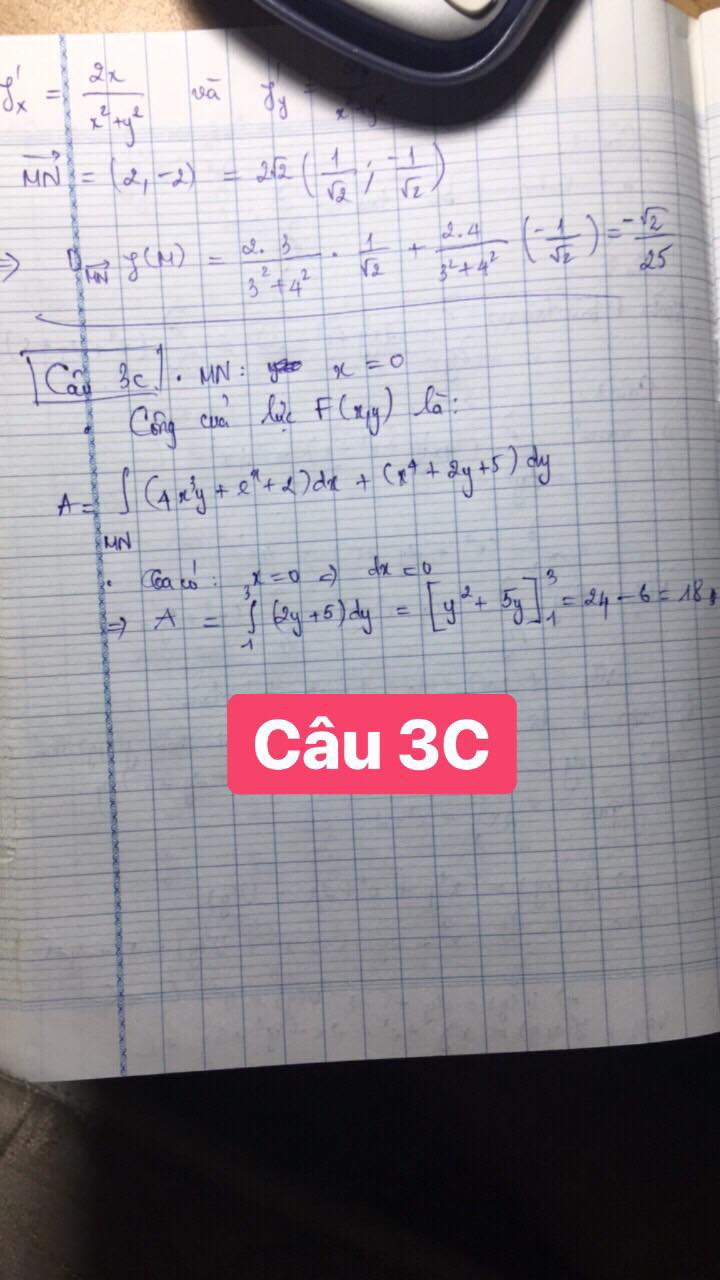 f'x = 2x / (x² + y²) và f'y =
MN = (2, -2) = 2√2 (1/√2 ; -1/√2)
⇒ D MN f(M) = (2.3)/(3² + 4²) . 1/√2 + (2.4)/(3² + 4²) (-1/√2) = -√2/25
Câu 3c . MN: x = 0
. Công của lực F(x,y) là:
A = ∫ MN (4x³y + eˣ + 2)dx + (x⁴ + 2y + 5)dy
. Ta có: x = 0 ⇒ dx = 0
⇒ A = ∫₁³ (2y + 5)dy = [y² + 5y]₁³ = 24 - 6 = 18
Câu 3C